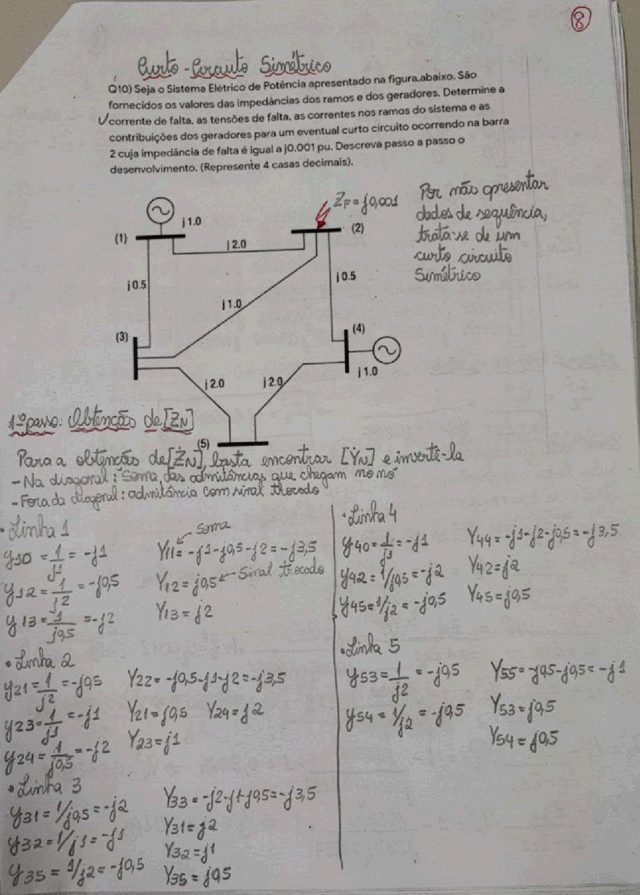 8
Curto-Circuito Simétrico
Q10) Seja o Sistema Elétrico de Potência apresentado na figura abaixo. São
fornecidos os valores das impedâncias dos ramos e dos geradores. Determine a
corrente de falta, as tensões de falta, as correntes nos ramos do sistema e as
contribuições dos geradores para um eventual curto circuito ocorrendo na barra
2 cuja impedância de falta é igual a j0.001 pu. Descreva passo a passo o
desenvolvimento. (Represente 4 casas decimais).
ZF = j0,001
Por não apresentar
dados de sequência,
trata-se de um
curto circuito
simétrico
j1.0
(1)
(2)
j2.0
j0.5
j1.0
j0.5
(3)
(4)
j1.0
j2.0
j2.0
(5)
1º passo: Obtenção de [ZN]
Para a obtenção de [ŻN], basta encontrar [ẎN] e invertê-la
- Na diagonal: Soma das admitâncias que chegam no nó
- Fora da diagonal: admitância com sinal trocado
• Linha 1
y10 = 1/j1 = -j1
Soma
Y11 = -j1-j0,5-j2 = -j3,5
y12 = 1/j2 = -j0,5
Y12 = j0,5 ← Sinal trocado
y13 = 1/j0,5 = -j2
Y13 = j2
• Linha 2
y21 = 1/j2 = -j0,5
Y22 = -j0,5-j1-j2 = -j3,5
Y21 = j0,5 Y24 = j2
y23 = 1/j1 = -j1
Y23 = j1
y24 = 1/j0,5 = -j2
• Linha 3
y31 = 1/j0,5 = -j2
Y33 = -j2-j1-j0,5 = -j3,5
Y31 = j2
y32 = 1/j1 = -j1
Y32 = j1
y35 = 1/j2 = -j0,5
Y35 = j0,5
• Linha 4
y40 = 1/j1 = -j1
Y44 = -j1-j2-j0,5 = -j3,5
y42 = 1/j0,5 = -j2
Y42 = j2
y45 = 1/j2 = -j0,5
Y45 = j0,5
• Linha 5
y53 = 1/j2 = -j0,5
Y55 = -j0,5-j0,5 = -j1
y54 = 1/j2 = -j0,5
Y53 = j0,5
Y54 = j0,5